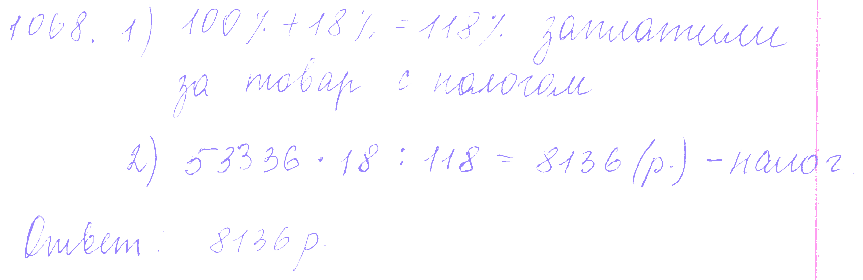 1068. 1) 100% + 18% = 118% заплатили
за товар с налогом
2) 53336 · 18 : 118 = 8136 (р.) – налог.
Ответ: 8136 р.